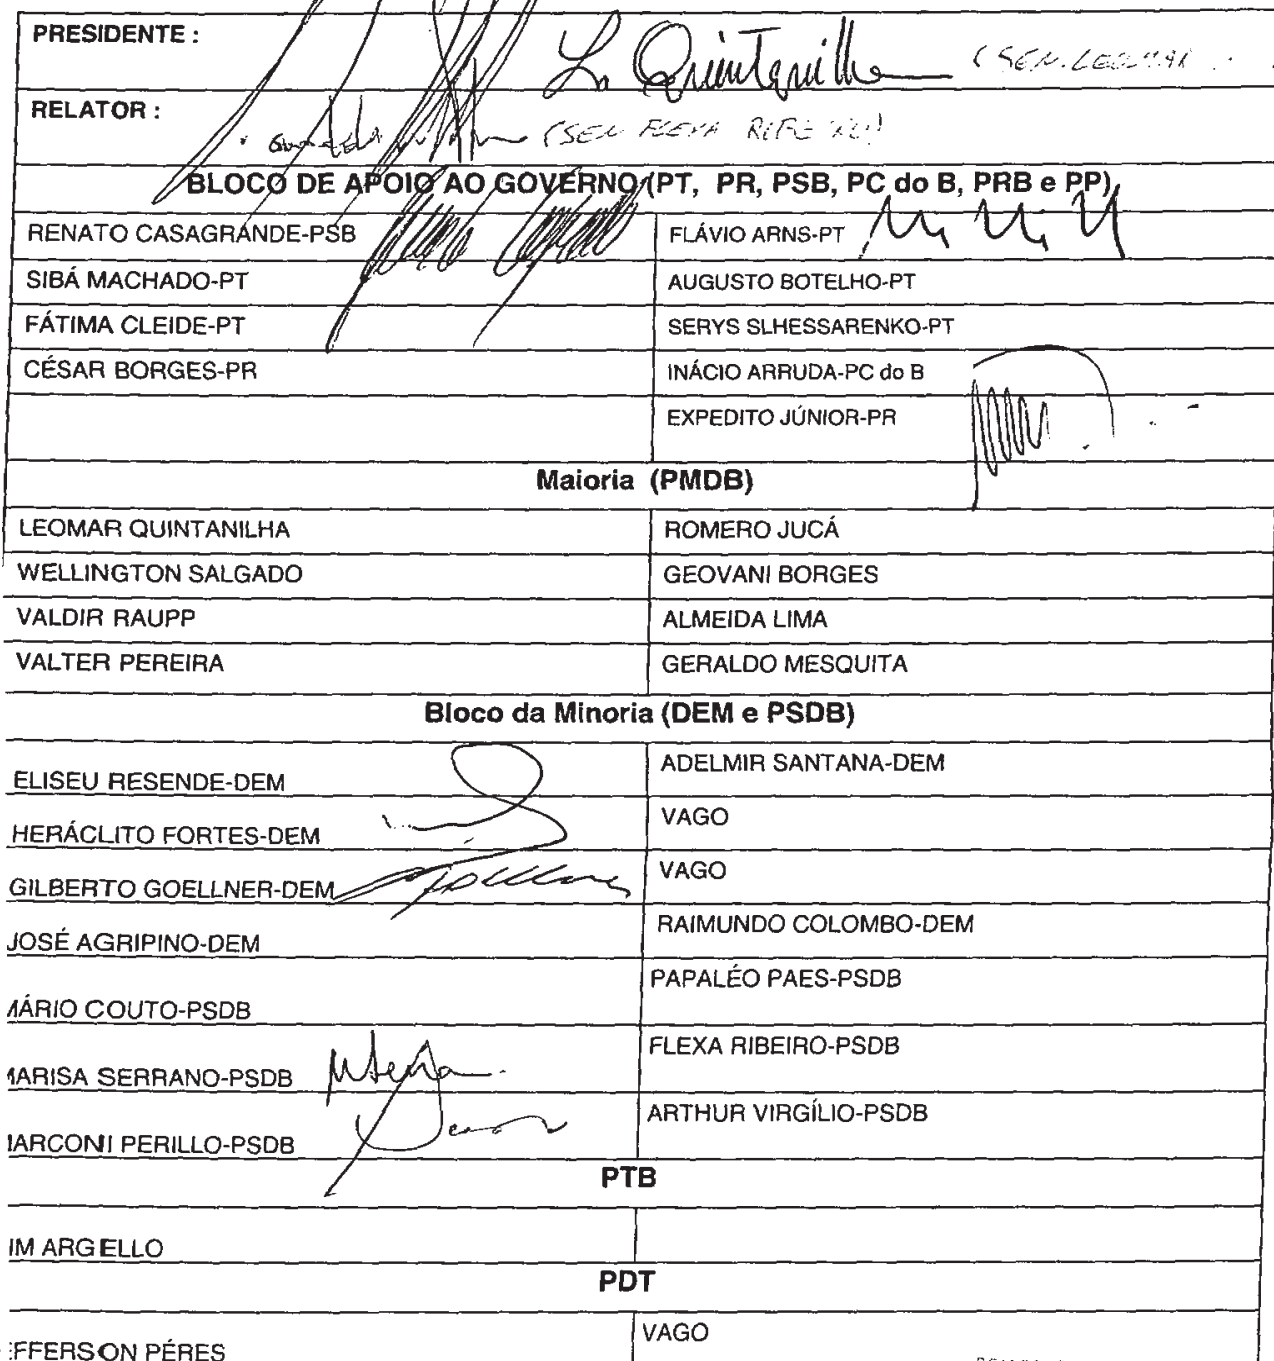 PRESIDENTE : L. Quintanilha (SEN. LEOMAR
RELATOR : (SEN FLEXA RIBEIRO)
BLOCO DE APOIO AO GOVERNO (PT, PR, PSB, PC do B, PRB e PP)
RENATO CASAGRANDE-PSB FLÁVIO ARNS-PT
SIBÁ MACHADO-PT AUGUSTO BOTELHO-PT
FÁTIMA CLEIDE-PT SERYS SLHESSARENKO-PT
CÉSAR BORGES-PR INÁCIO ARRUDA-PC do B
EXPEDITO JÚNIOR-PR
Maioria (PMDB)
LEOMAR QUINTANILHA ROMERO JUCÁ
WELLINGTON SALGADO GEOVANI BORGES
VALDIR RAUPP ALMEIDA LIMA
VALTER PEREIRA GERALDO MESQUITA
Bloco da Minoria (DEM e PSDB)
ELISEU RESENDE-DEM ADELMIR SANTANA-DEM
HERÁCLITO FORTES-DEM VAGO
GILBERTO GOELLNER-DEM VAGO
JOSÉ AGRIPINO-DEM RAIMUNDO COLOMBO-DEM
MÁRIO COUTO-PSDB PAPALÉO PAES-PSDB
MARISA SERRANO-PSDB FLEXA RIBEIRO-PSDB
MARCONI PERILLO-PSDB ARTHUR VIRGÍLIO-PSDB
PTB
IM ARGELLO
PDT
EFFERSON PÉRES VAGO